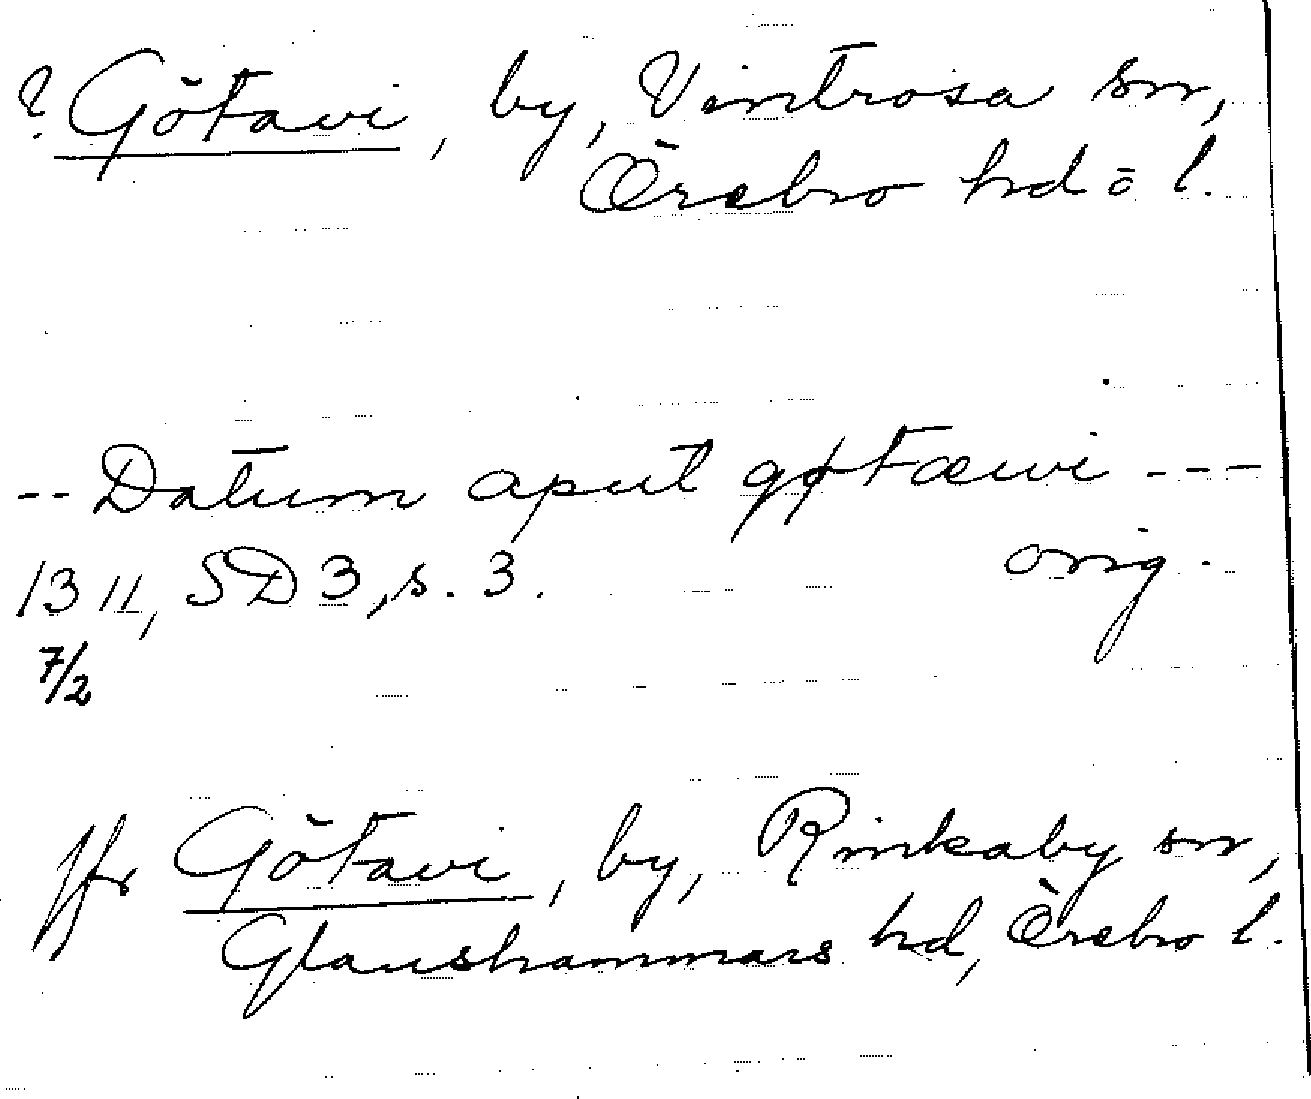 ? Götavi, by, Vintrosa sn,
Örebro hd o l.
-- Datum aput gøtæwi ---
1311, SD 3, s. 3. orig.
7/2
Jfr Götavi, by, Rinkaby sn,
Glanshammars hd, Örebro l.